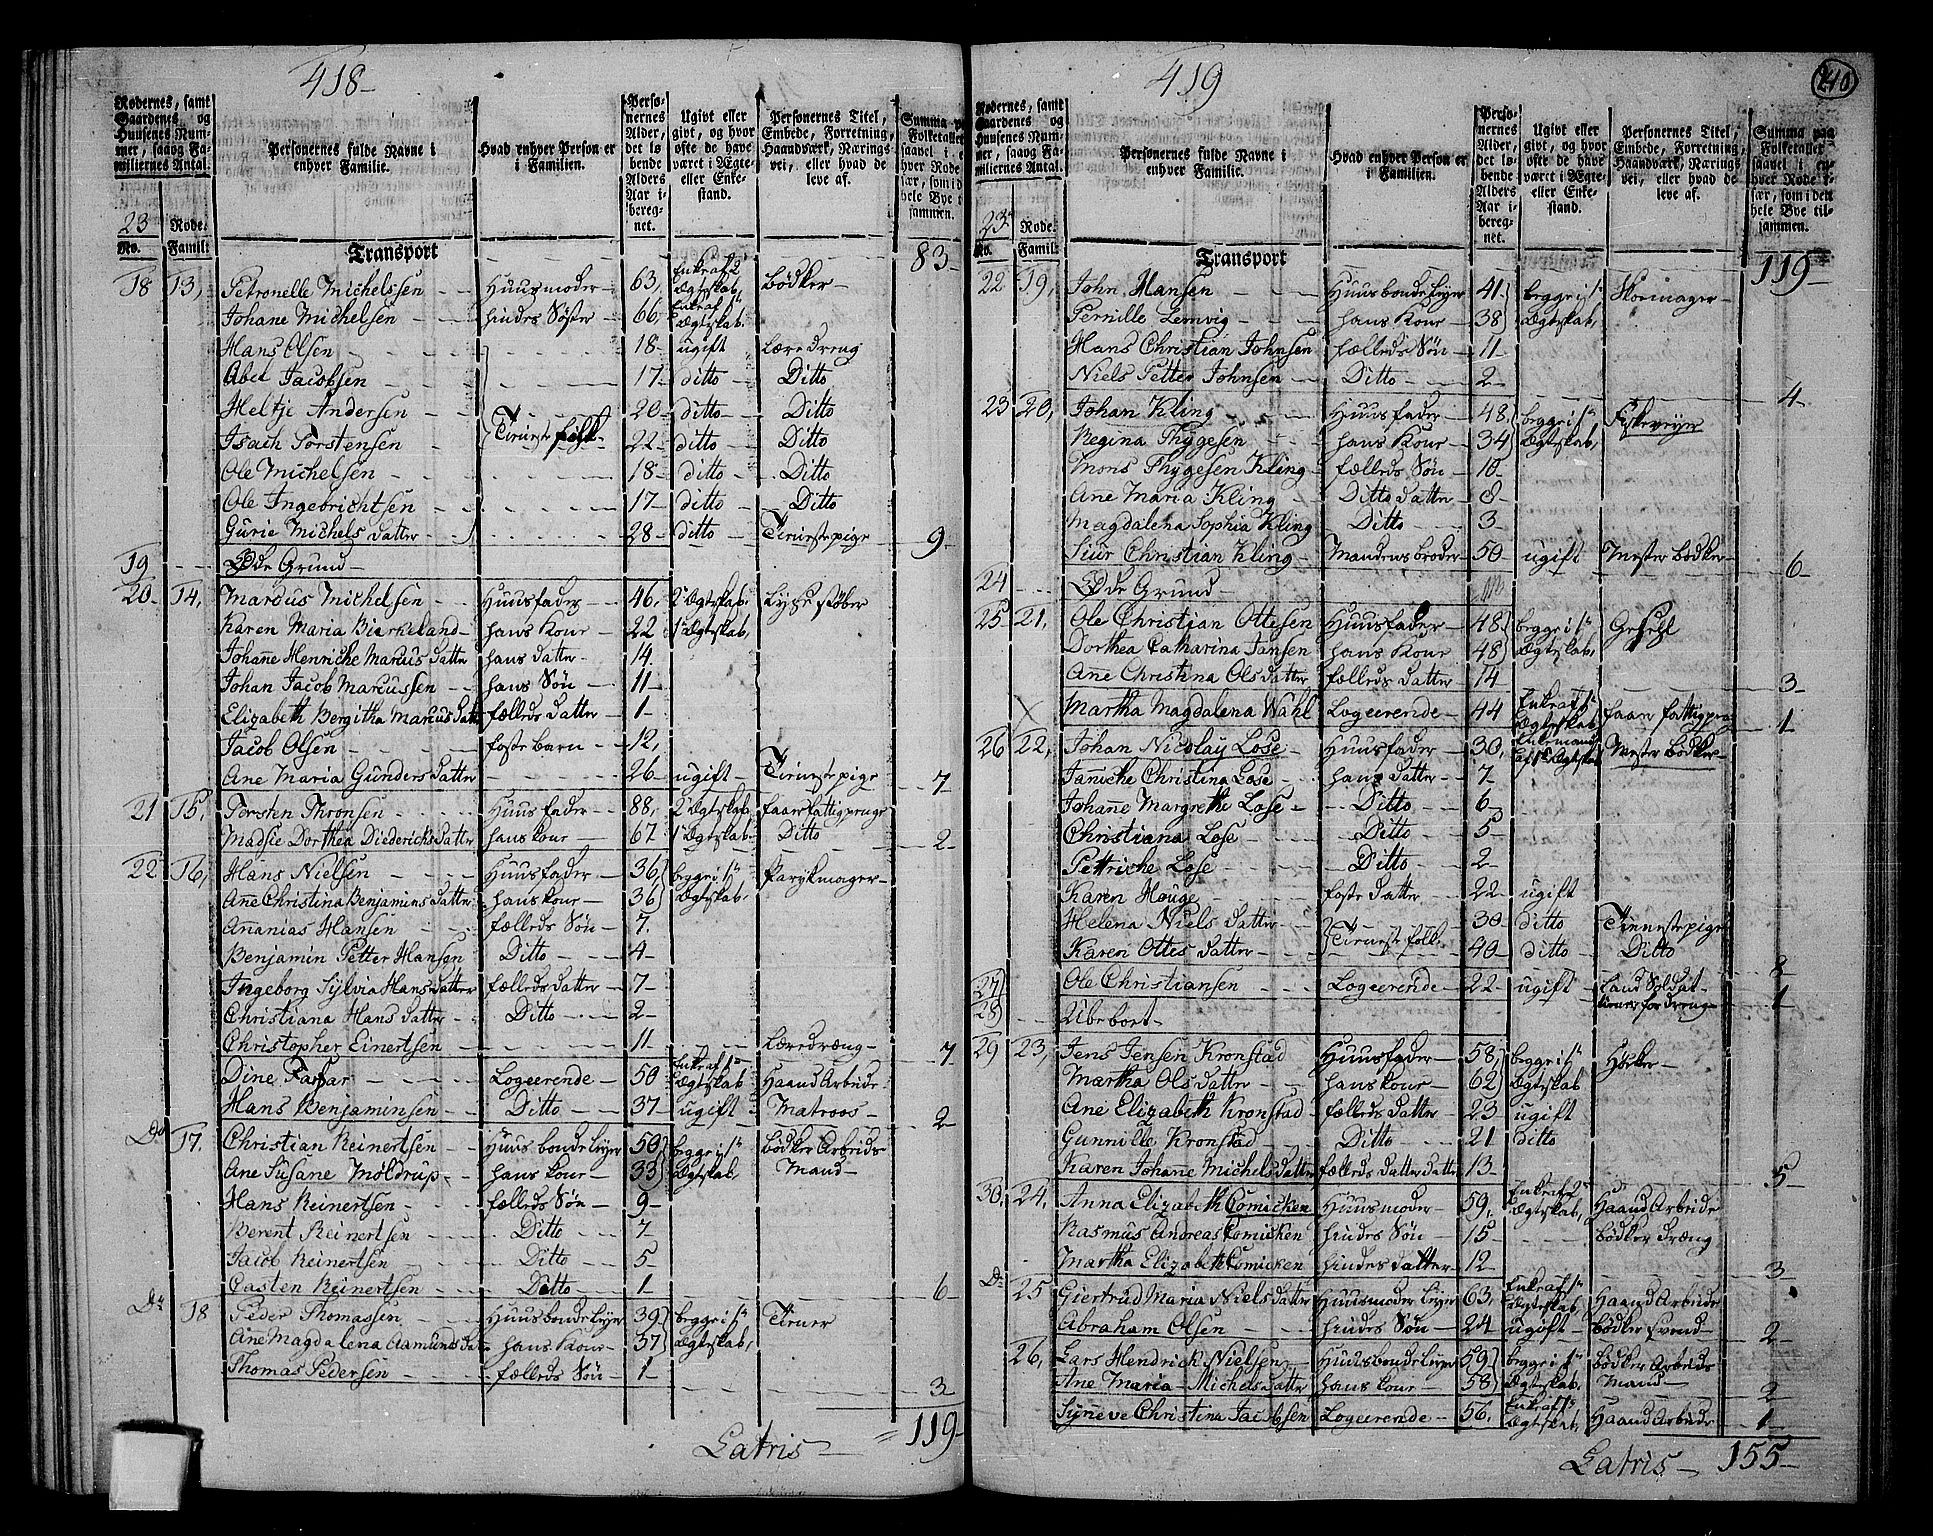 418-
Rodernes, samt Gaardenes og Huusenes Nummer, saavg Familiernes Antal.
Personernes fulde Navne i enhver Familie.
Hvad enhver Person er i Familien.
Personernes Alder, det løbende Alders Aar iberegnet.
Ugivt eller givt, og hvor ofte de have været i Ægte- eller Enkestand.
Personernes Titel, Embede, Forretning, Haandværk, Næringsvei, eller hvad de leve af.
23 Rode.
No. Famili:
Transport 83-
18 13, Petronelle Michelssen Huusmoder 63, Enke af 2 Ægteskab, bødker
Johane Michelsen hendes Søster 66, Enke af 1ste Ægteskab.
Hans Olsen 18- ugift Læredreng
Abel Jacobsen 17- ditto Ditto
Heltje Andersen 20- ditto Ditto
Isach Torstensen Tieneste folk 22- ditto Ditto
Ole Michelsen 18- ditto Ditto
Ole Ingebrichtsen 17- ditto Ditto
Gurie Michels datter 28- ditto Tienestepige 9-
19 Øde Grund
20- 14, Marcus Michelsen Huusfader 46, 2 Ægteskab. Lysestøber
Karen Maria Bierkeland hans Kone 22 1 Ægteskab,
Johane Henriche Marcus datter hans datter 14
Johan Jacob Marcussen hans Søn 11-
Elizabeth Bergitha Marcus datt fælleds datter 1-
Jacob Olsen foster barn 12,
Ane Maria Gunders datter 26- ugift Tienestepige 7
21 15, Torsten Thronsen Huusfader 88, 2 Ægteskab faar fattigpenge
Madsie Dorthea Diederichs datter hans kone 67 1 Ægteskab Ditto 2-
22 16, Hans Nielsen Huusfader 36, begge i 1ste Ægteskab, Parykmager
Ane Christina Benjamins datter hans kone 36
Ananias Hansen fælleds Søn 7.
Benjamin Petter Hansen Ditto 4-
Ingeborg Sylvia Hans datter fælleds datter 7-
Christiana Hans datter Ditto 2-
Christopher Einertsen 11- Læredræng 7
Dine Farfar Logeerende 50 Enke af 1ste Ægteskab Haand Arbeide
Hans Benjaminsen Ditto 37- ugift Matroos 2
Do 17. Christian Reinertsen Huusbonde Leyer 50 begge i 1ste Ægteskab, bødker Arbeids Mand
Ane Susane Møldrup hans kone 33
Hans Reinertsen fælleds Søn 9-
Berent Reinertsen Ditto 7-
Jacob Reinertsen Ditto 5
Casten Reinertsen Ditto 1 6-
Do 18 Peder Thomassen Huusbonde Leyer 39 begge i 1ste Ægteskab, Tiener
Ane Magdalena Aamunds dat hans Kone 37
Thomas Pedersen fælleds Søn 1 3-
Latris = 119-
419
210
Rodernes, samt Gaardenes og Huusenes Nummer, saavg Familiernes Antal.
Personernes fulde Navne i enhver Familie.
Hvad enhver Person er i Familien.
Personernes Alder, det løbende Alders Aar iberegnet.
Ugivt eller givt, og hvor ofte de have været i Ægte- eller Enkestand.
Personernes Titel, Embede, Forretning, Haandværk, Næringsvei, eller hvad de leve af.
Summa paa Folketallet saavel i enhver Rode især, som i den hele Bye tilsammen.
23 Rode.
No. Famili:
Transport 119-
22 19, John Hansen Huusbonde Leyer 41. begge i 1ste Ægteskab, Skomager
Pernille Lemvig hans Kone 38
Hans Christian Johnsen fælleds Søn 11
Niels Petter Johnsen Ditto 2- 4-
23 20, Johan Kling Huusfader 48, begge i 1ste Ægteskab,
Regina Thygesen hans Kone 34
Mons Thygesen Kling fælleds Søn 10
Ane Maria Kling Ditto datter 8
Magdalena Sophia Kling Ditto 3-
Siur Christian Kling Mandens broder 50 ugift Mester bødker 6-
24 Øde Grund
25 21, Ole Christian Ottesen Huusfader 48. begge i 1ste Ægteskab,
Dorthea Catharina Jansen hans Kone 48
Ane Christina Ols datter fælleds datter 14 3-
X Martha Magdalena Wahl Logeerende 44 Enke af 1ste Ægteskab faar fattigpen 1
26 22, Johan Nicolay Lose Huusfader 30, Enkemand af 1ste Ægteskab Mester bødker
Janiche Christina Lose hans datter 7-
Johane Margrethe Lose Ditto 6-
Christiana Lose Ditto 5-
Pettriche Lose Ditto 2-
Karen Houge foster datter 22 ugift
Helena Niels datter Tieneste folk 30 ditto Tienestepige
Karen Ottes datter 40 ditto Ditto 8
27 Ole Christiansen Logeerende 22 ugift Land Soldat tiener for dreng 1
28 Ubeboet
29 23, Jens Jensen Kronstad Huusfader 58, begge i 1ste Ægteskab Høker
Martha Ols datter hans kone 62
Ane Elizabeth Kronstad fælleds datter 23 ugift
Gunnille Kronstad Ditto 21 ditto
Karen Johane Michels datter fælleds datter datter 13- 5-
30, 24, Anna Elizabeth Comicken Huusmoder 59, Enke af 2 Ægteskab, Haand Arbeide
Rasmus Andreas Comicken hendes Søn 15 bødker dræng
Martha Elizabeth Comicken hendes datter 12- 3-
Do 25 Giertrud Maria Niels datter Huusmoder Leyer 63, Enke af 1ste Ægteskab, Haand Arbeide
Abraham Olsen hendes Søn 24 ugift bødker Svend 2-
26, Lars Hendrick Nielsen Huusbonde Leyer 59 begge i 1ste Ægteskab. bødker Arbeids Mand
Ane Maria Michels datter hans kone 58 2
Synneve Christina Jacobsen Logeerende 56. Enke af 1ste Ægteskab Haand Arbeide 1-
Latris 155-